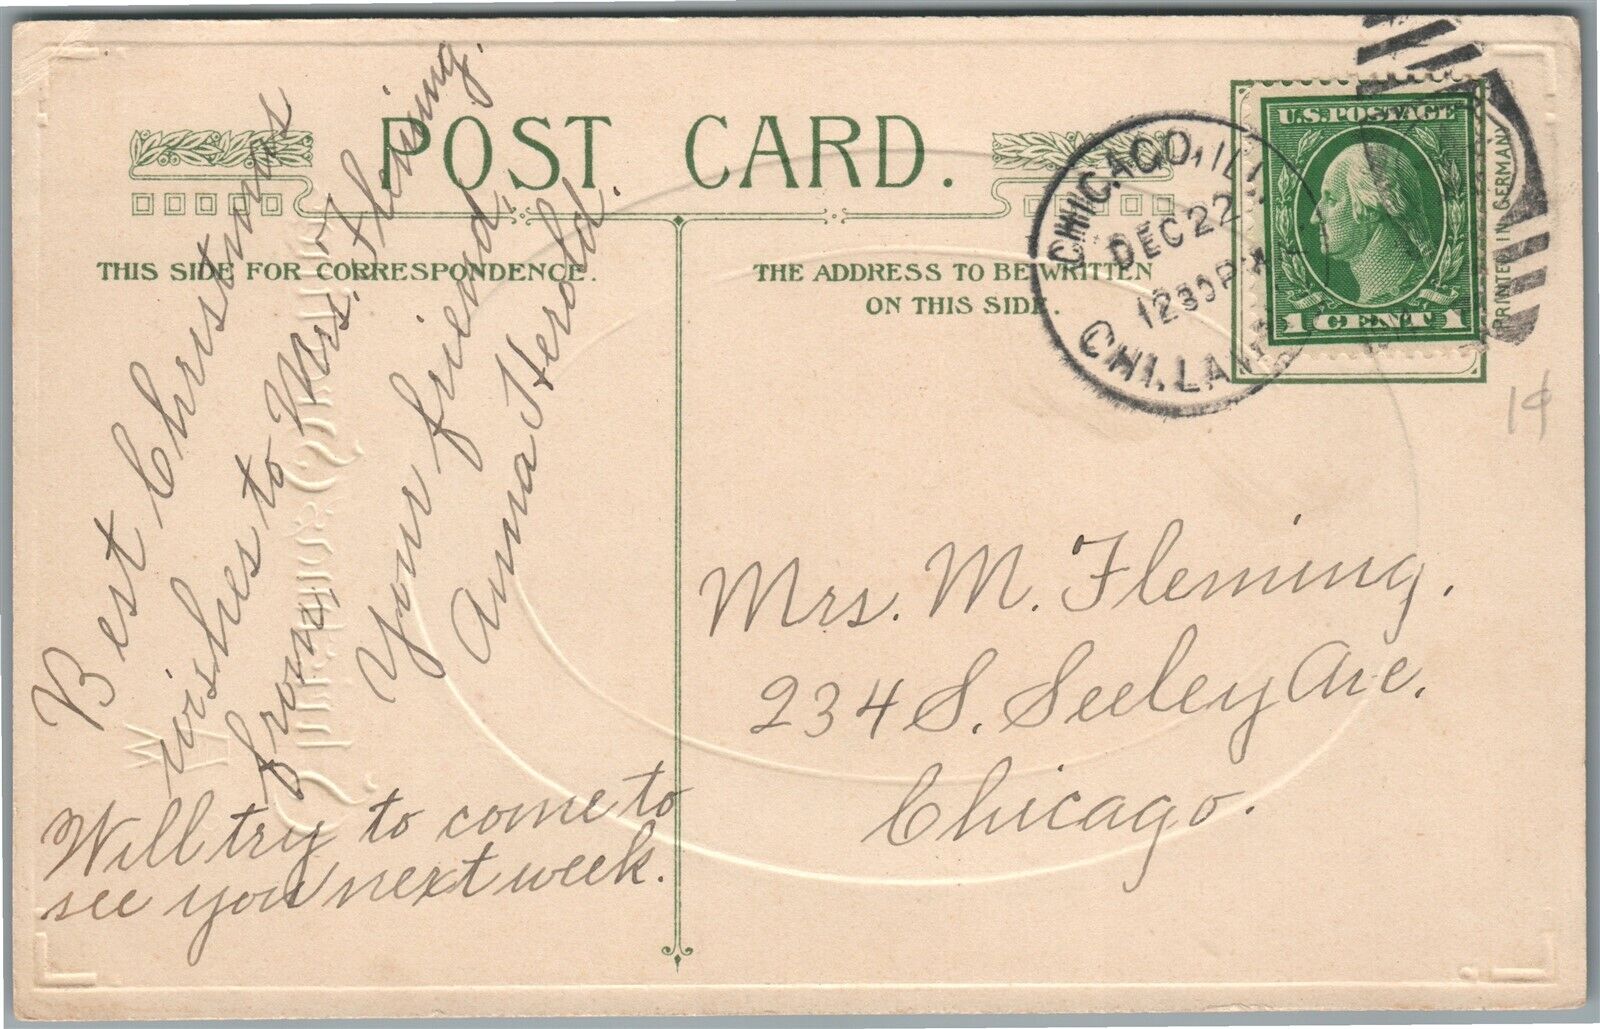 POST CARD.
THIS SIDE FOR CORRESPONDENCE.
THE ADDRESS TO BE WRITTEN
ON THIS SIDE.
CHICAGO, ILL
DEC 22
1230 PM
CHI. LAWN
U.S. POSTAGE
1 CENT 1
PRINTED IN GERMANY
1¢
Best Christmas
wishes to Mrs. Fleming.
from
Your friend,
Anna Herold.
Will try to come to
see you next week.
Mrs. M. Fleming.
234 S. Seeley Ave.
Chicago.